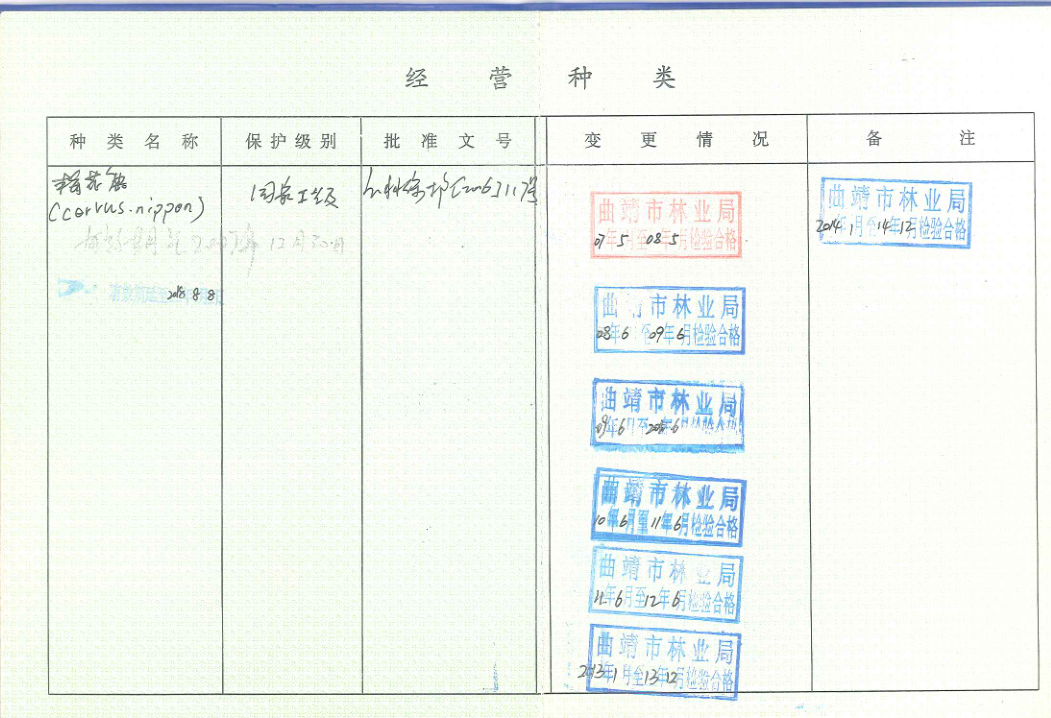 经营种类
种类名称 保护级别 批准文号 变更情况 备注
梅花鹿 国家Ⅰ级
(cervus.nippon)
12月30日
2018 8 8
曲靖市林业局
07年5月至08年5月检验合格
曲靖市林业局
08年6月至09年6月检验合格
曲靖市林业局
09年6月至 年6月检验合格
曲靖市林业局
10年6月至11年6月检验合格
曲靖市林业局
11年6月至12年6月检验合格
曲靖市林业局
2013年1月至13年12月检验合格
曲靖市林业局
2014年1月至14年12月检验合格